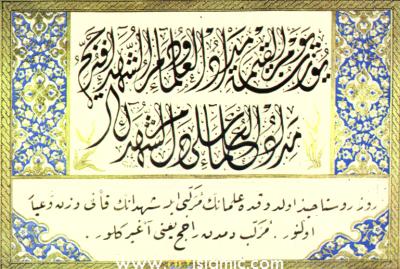 يوزن يوم القيمة مداد العلماء ودم الشهداء فيرجح
مداد العلماء على دم الشهداء
روز روستاخيز اولدوقده علمانك مركبى ايله شهدانك قانى وزن وعيار
اولنور . مركب دمدن راجح يعنى آغير كلور .